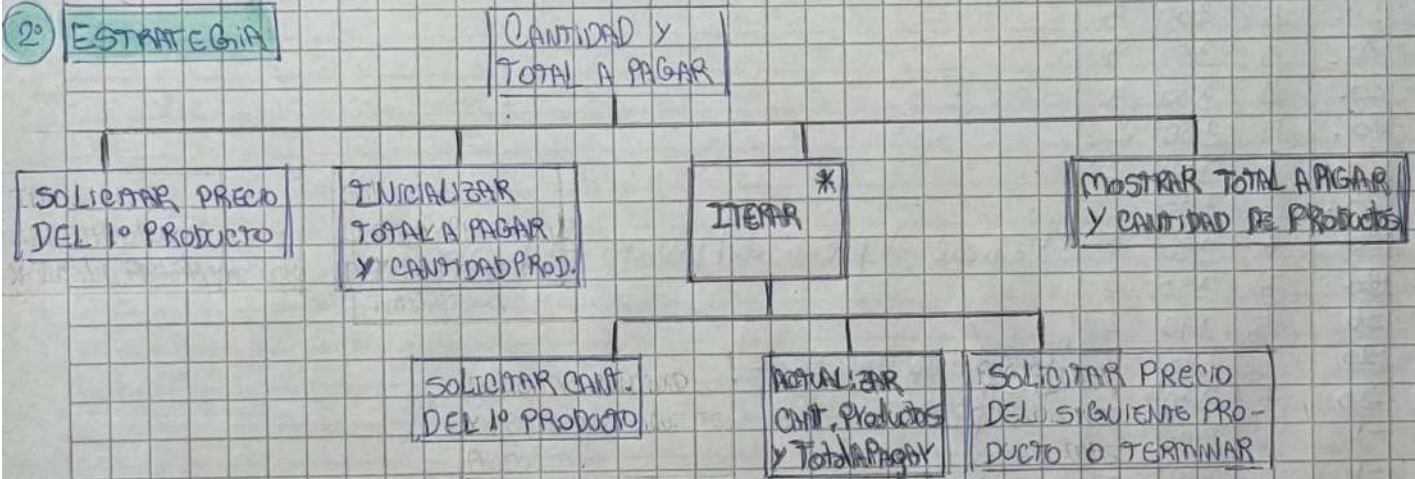 2º ESTRATEGIA
CANTIDAD Y
TOTAL A PAGAR
SOLICITAR PRECIO
DEL 1º PRODUCTO
INICIALIZAR
TOTAL A PAGAR
Y CANTIDAD PROD.
*
ITERAR
MOSTRAR TOTAL A PAGAR
Y CANTIDAD DE PRODUCTOS
SOLICITAR CANT.
DEL 1º PRODUCTO
ACTUALIZAR
CANT. Productos
y TotalAPagar
SOLICITAR PRECIO
DEL SIGUIENTE PRO-
DUCTO O TERMINAR